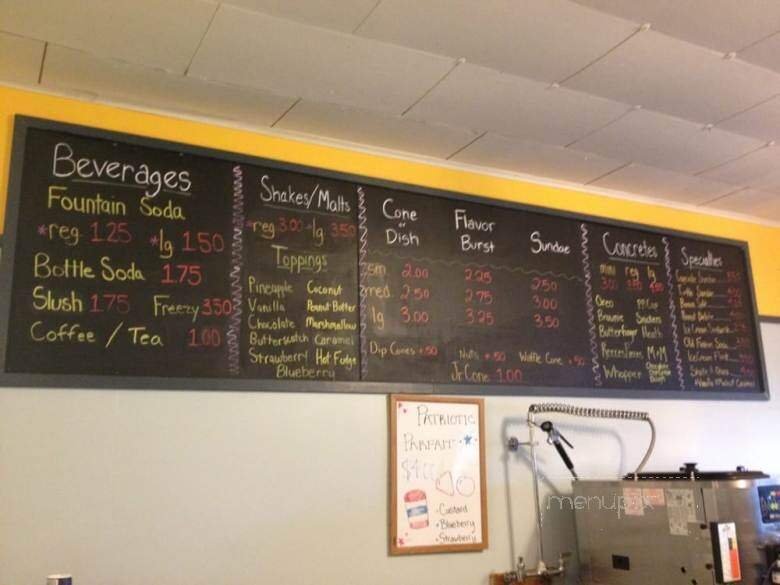 Beverages
Fountain Soda
*reg 1.25 *lg 1.50
Bottle Soda 1.75
Slush 1.75 Freezy 3.50
Coffee / Tea 1.00
Shakes/Malts
*reg 3.00 - lg 3.50
Toppings
Pineapple Coconut
Vanilla Peanut Butter
Chocolate Marshmallow
Butterscotch Caramel
Strawberry Hot Fudge
Blueberry
Cone or Dish Flavor Burst Sundae
sm 2.00 2.25 2.50
med 2.50 2.75 3.00
lg 3.00 3.25 3.50
Dip Cones +.50 Nuts +.50 Waffle Cone +.50
Jr Cone 1.00
Concretes
mini reg lg
Oreo
Brownie Snickers
Butterfinger Heath
M+M
Whopper Chocolate Dough
Specialties
Ice Cream
PATRIOTIC
PARFAIT
- Custard
• Blueberry
• Strawberry
menupix